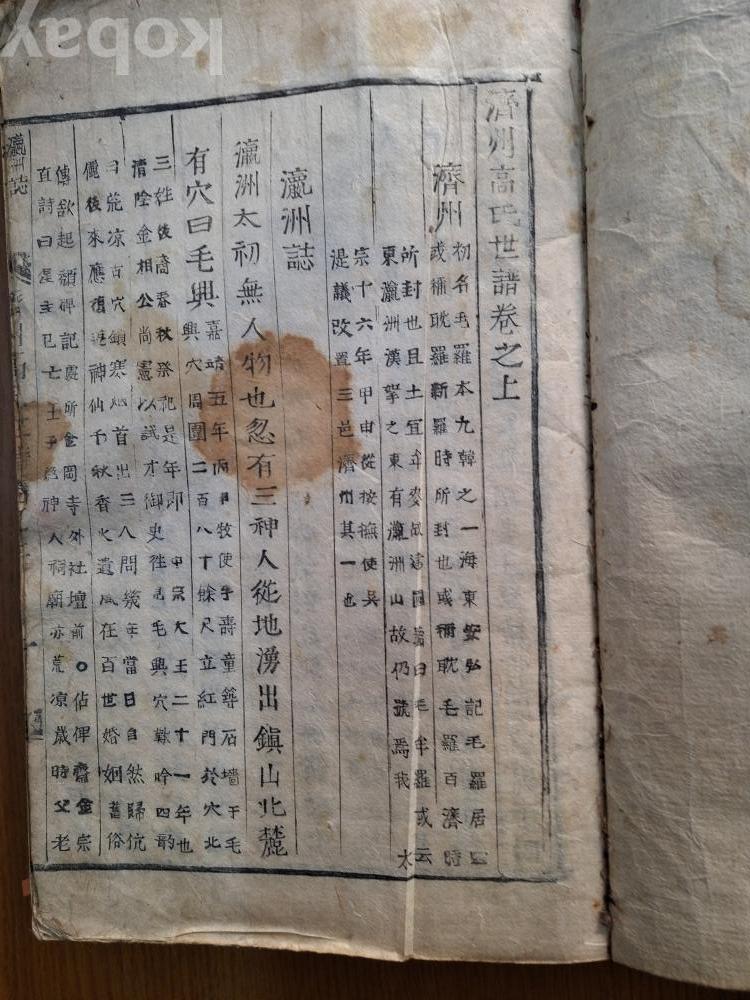 濟州高氏世譜卷之上
濟州
初名毛羅本九韓之一海東安弘記毛羅居
或稱耽羅新羅時所封也或稱耽毛羅百濟時
所封也且土宜牟麥故國號曰毛牟羅或云
東瀛洲漢拏之東有瀛洲山故仍號焉我 太
宗十六年甲申從按撫使吳
湜議改置三邑濟州其一也
瀛洲誌
瀛洲太初無人物也忽有三神人從地湧出鎭山北麓
有穴曰毛興
嘉靖五年丙牧使李壽童築石墻于毛
興穴周圍二百八十餘尺立紅門於穴北
三姓後裔春秋祭祀是年即 中宗大王二十一年也
清陰金相公尚憲以試才御史徃見毛興穴歎吟四韵
曰荒凉古穴鎖寒烟首出三人問幾年當日自然歸伉
儷後來應復返神仙千秋香火遺風在百世婚姻舊俗
傳欲起碑記處所金岡寺外社壇前○佔俾齋金宗
直詩曰星主已亡王子神人祠廟亦荒凉歲時父老
瀛洲誌
kobay